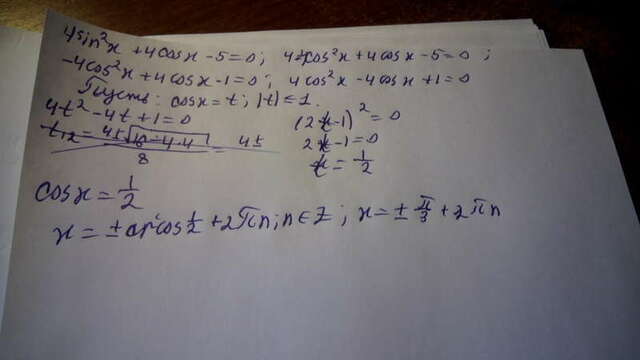 4sin²x + 4cosx - 5 = 0; 4-4cos²x + 4cosx - 5 = 0;
-4cos²x + 4cosx - 1 = 0; 4cos²x - 4cosx + 1 = 0
Пусть: cosx = t; |t| ≤ 1.
4t² - 4t + 1 = 0
(2t-1)² = 0
2t-1 = 0
t = 1/2
cosx = 1/2
x = ± arccos 1/2 + 2πn; n ∈ Z; x = ± π/3 + 2πn